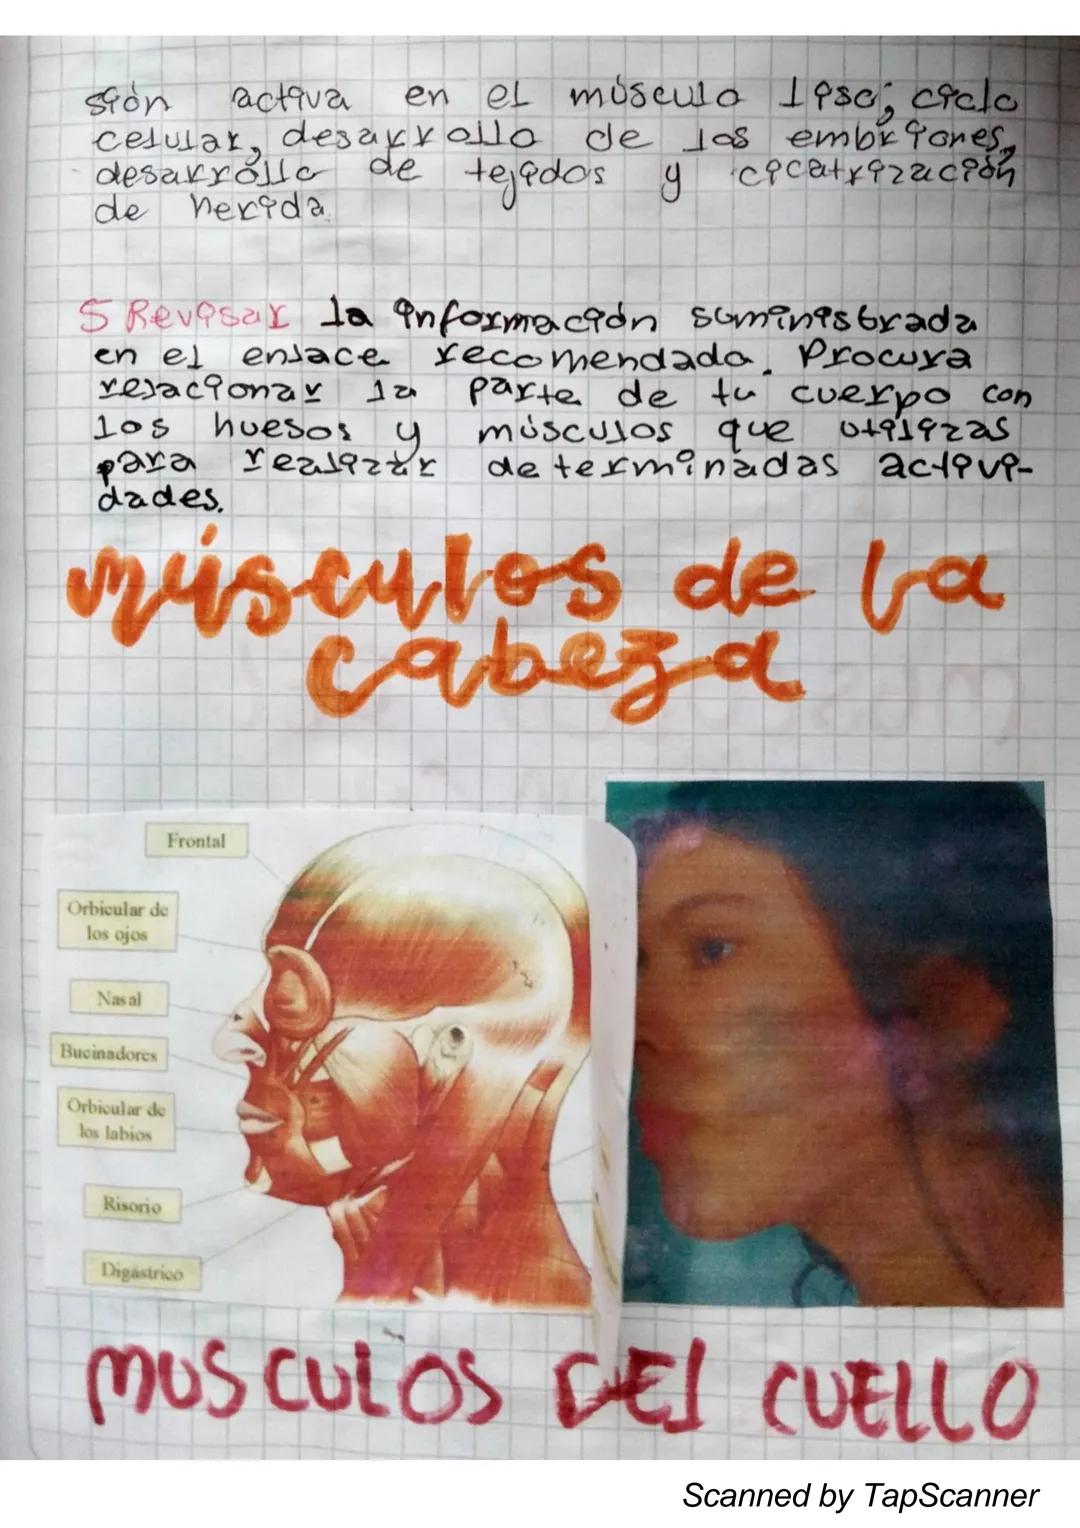 sión activa en el músculo liso; ciclo
celular, desarrollo de los embriones,
desarrollo de tejidos y cicatrización
de herida
5 Revisar la información suministrada
en el enlace recomendado. Procura
relacionar la parte de tu cuerpo con
los huesos y músculos que utilizas
para realizar determinadas activi-
dades.
músculos de la
cabeza
Frontal
Orbicular de
los ojos
Nasal
Bucinadores
Orbicular de
los labios
Risorio
Digástrico
MUSCULOS DEL CUELLO
Scanned by TapScanner